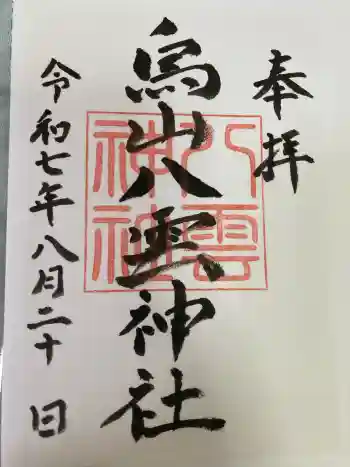 奉拝
烏山八雲神社
八雲
神社
令和七年八月二十日